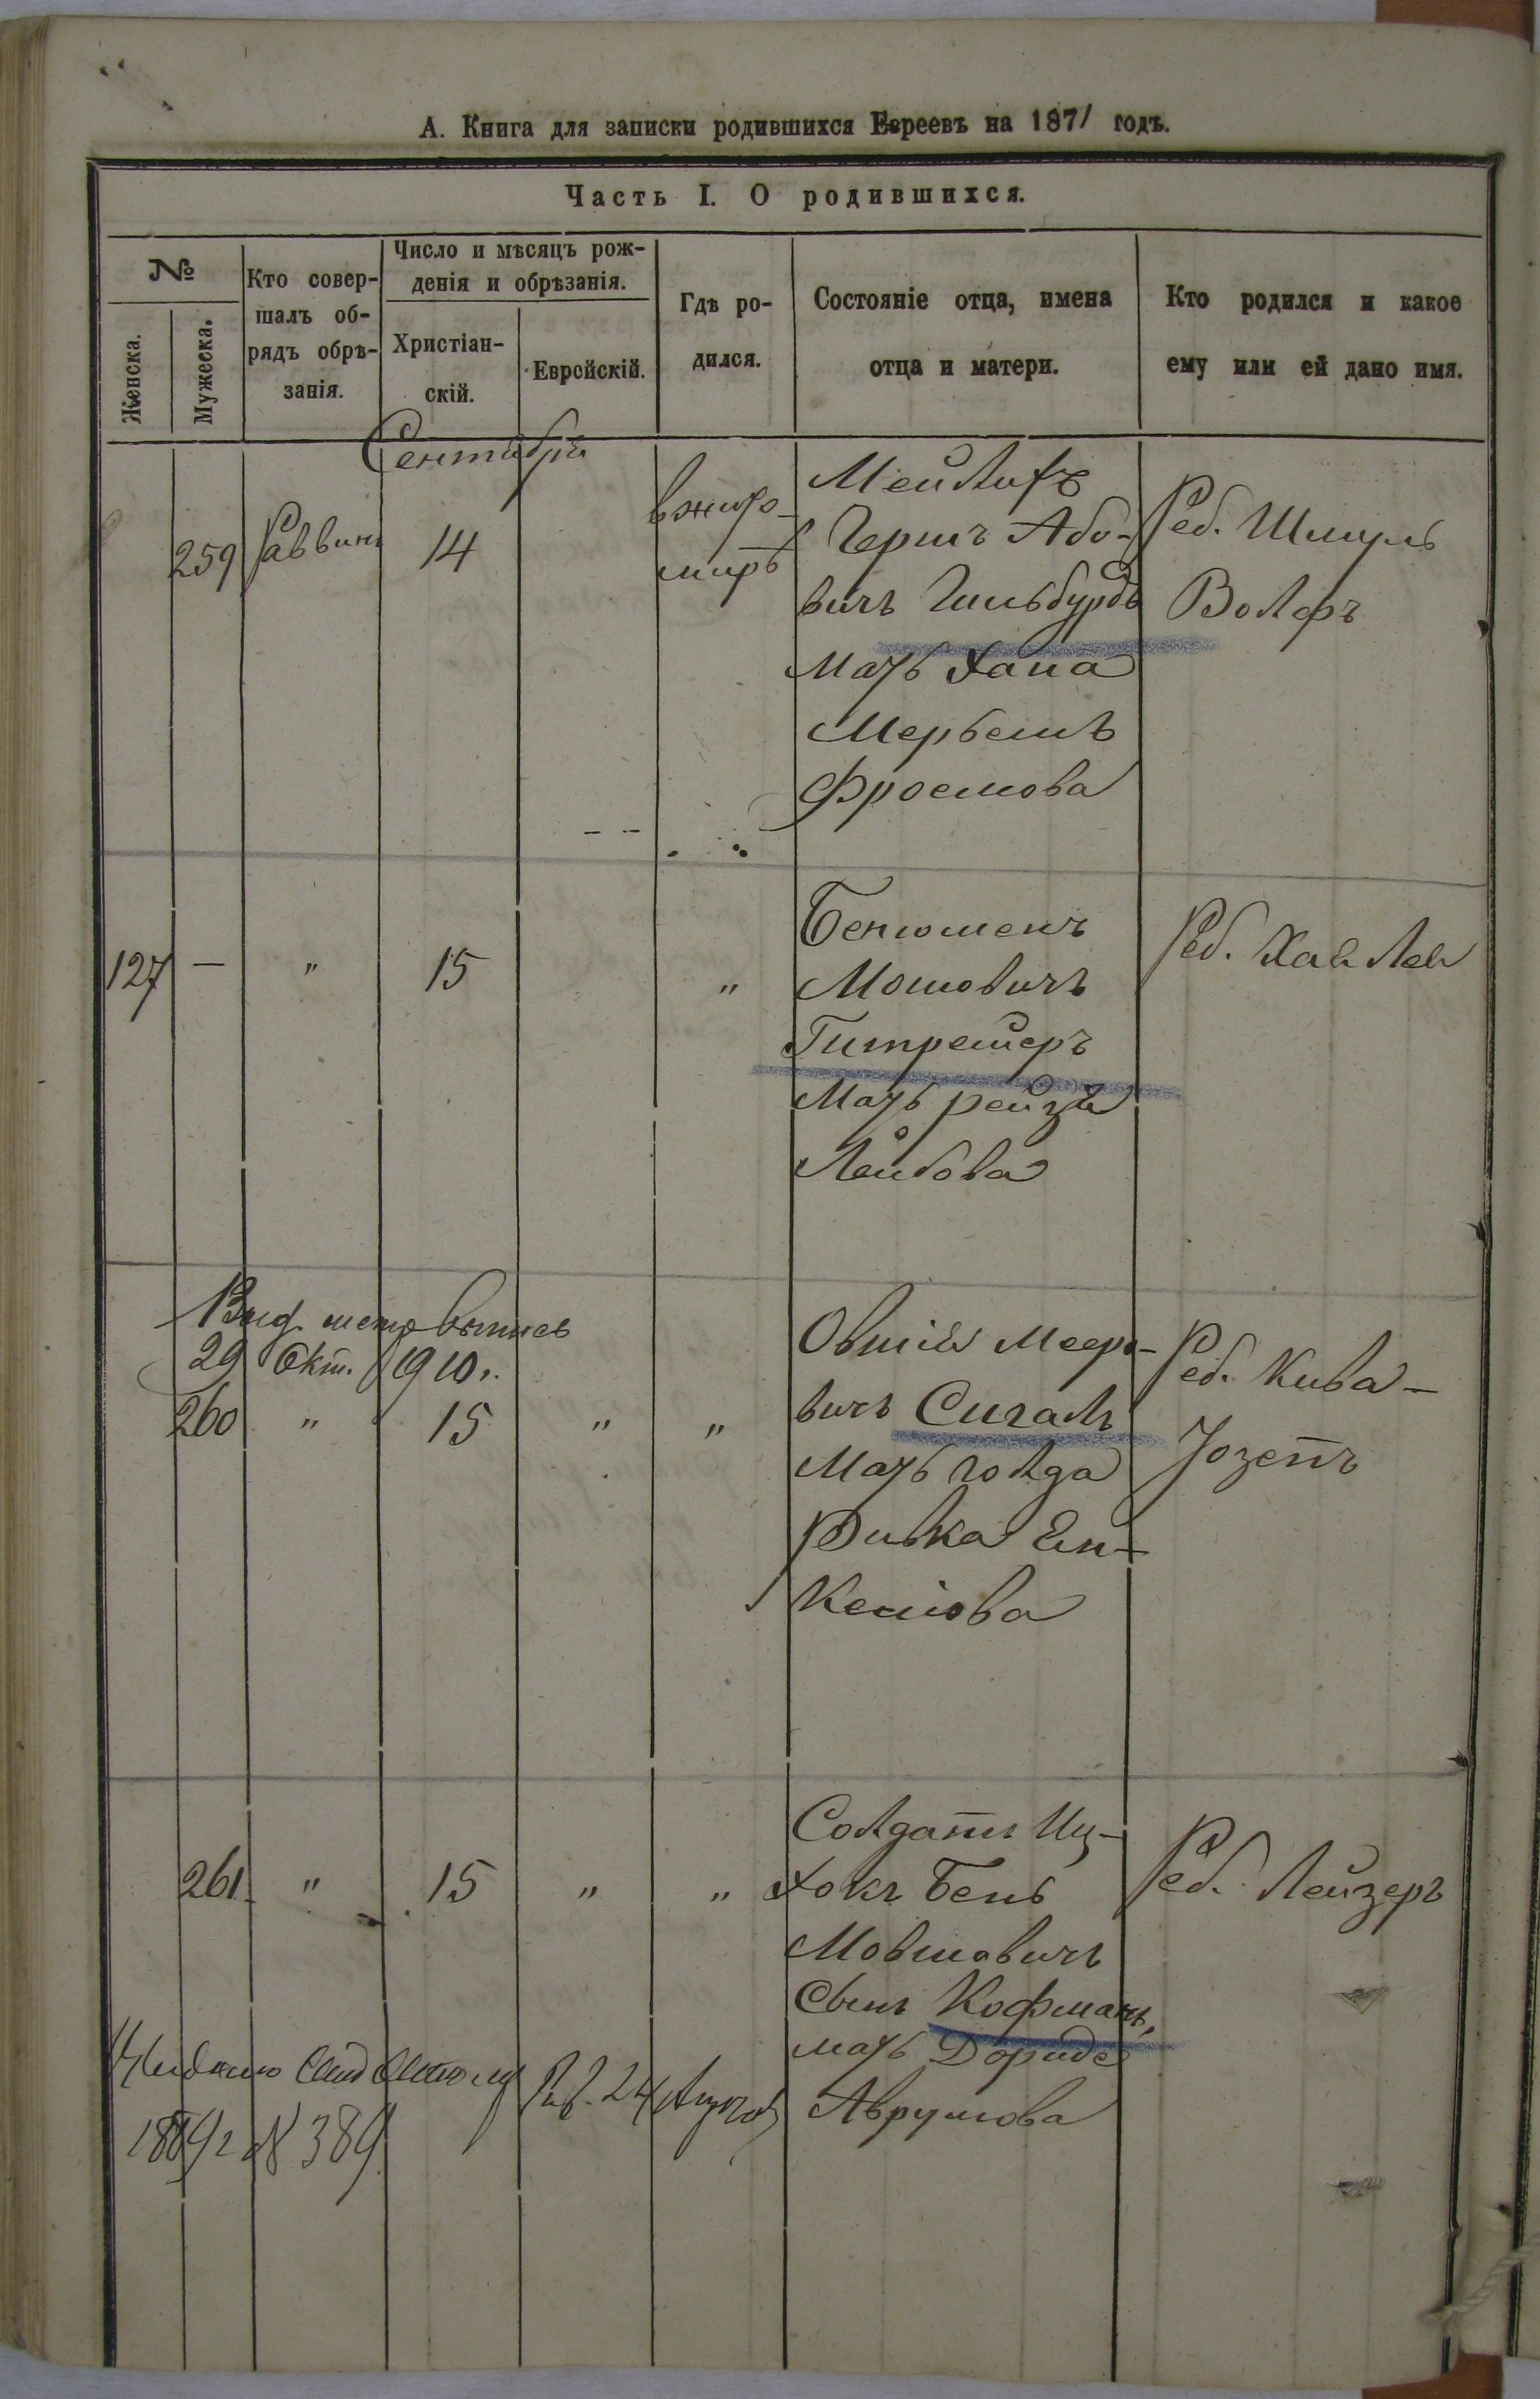 А. Книга для записки родившихся Евреевъ на 1871 годъ.
Часть I. О родившихся.
№
Женска.
Мужеска.
Кто совер-
шалъ об-
рядъ обрѣ-
занія.
Число и мѣсяцъ рож-
денія и обрѣзанія.
Христіан-
скій.
Еврейскій.
Гдѣ ро-
дился.
Состояніе отца, имена
отца и матери.
Кто родился и какое
ему или ей дано имя.
Сентября
259
Раввинъ
14
в жито-
мирѣ
Гершъ Або-
вичъ Гильбурдъ
Мать Хана
Фроемова
Реб. Шмуль
Волфъ
127
—
"
15
"
Бенюменъ
Мошовичъ
Гитрейеръ
Мать рейзя
Лейбова
Реб. Хая Лея
Выд. метр выпись
29 Окт. 1910 г.
260
"
15
"
"
Овшій Мееро-
вичъ Сигалъ
Мать голда
Ривка Еин-
Реб. Кива-
Іозепъ
261
"
15
"
"
Солдатъ Иц-
хокъ Бень
Мовшовичъ
Сынъ Кофманъ,
мать Дориде
Аврумова
Реб. Лейзеръ
24
1889 г № 389